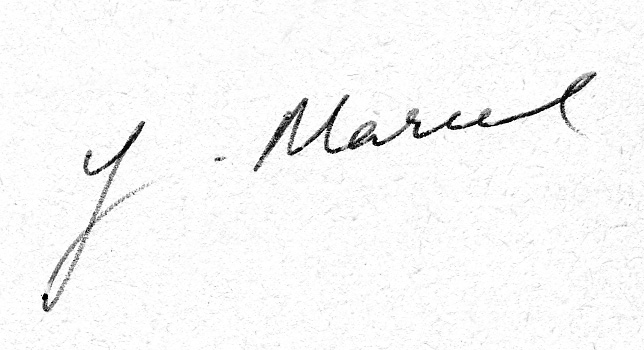 y. Marcel